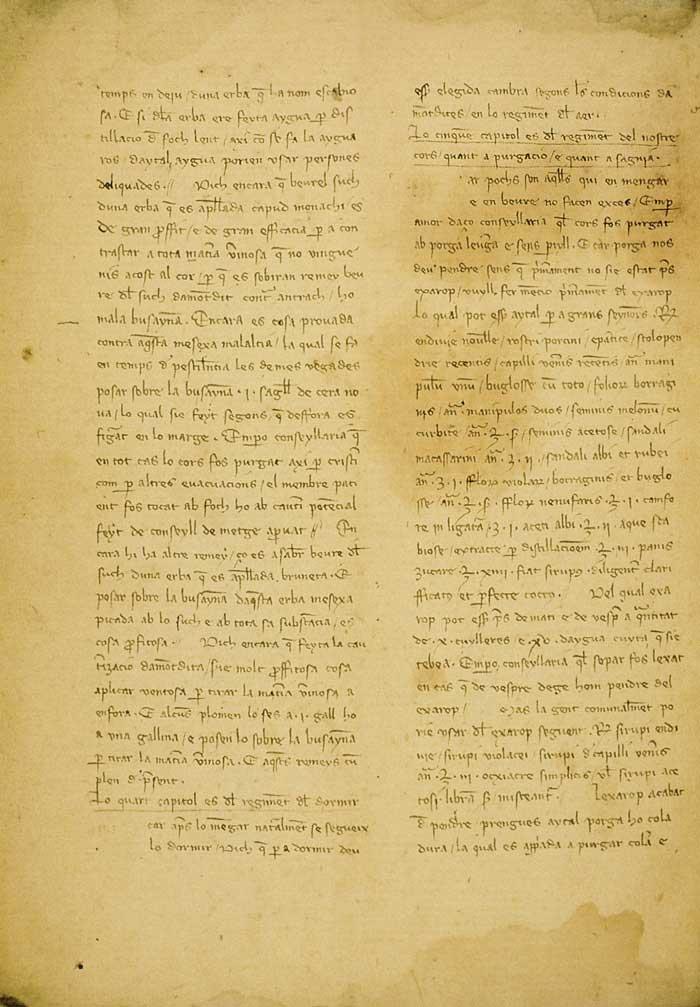 temps en deiu / duna erba q̄ ha nom escabio
sa. E si dla erba ere feyta aygua p̄ dis
tillacio d̄ foch lent / axi cō se fa la aygua
ros / daytal aygua porien vsar persones
deliquades. // Dich encara que beurel such
duna erba q̄ es ap̄llada capud monachi es
de gran p̄ffit / e de gran efficacia p̄ a con
trastar a tota mat̄ia v̄inosa q̄ no vingue
nis acost al cor / p̄ q̄ es sobiran remey beu
re dl such damōtdit cont̄ antrach / ho
mala busayn̄a. Encara es cosa prouada
contra aq̄sta mesexa malaltia / la qual se fa
en temps d pestiln̄tia les de mes vegades
posar sobre la busayn̄a . i . sagll de cera no
ua / lo qual sie feyt segons / q̄ deffora es
figat en lo marge. Emp̄o conseyllaria q̄
en tot cas lo cors fos purgat axi p̄ cristi
com p̄ altres euacuacions / el membre paci
ent fos tocat ab foch ho ab cauti potēcial
feyt de conseyll de metge ap̄uat // En
cara hi ha altre remey / ço es a sabr̄ beure dl
such duna erba q̄ es ap̄llada, bruneta. Et
posar sobre la busayn̄a daq̄sta erba mesexa
picada ab lo such e ab tota sa substācia / es
cosa p̄fitosa. Dich encara q̄ feyta la cau
t̄izacio damōtdita / sie molt p̄ffitosa cosa
aplicar ventosa p̄ tirar la mat̄ia v̄inosa a
enfora. E alcūs plomen lo ses a . i . gall ho
a vna gallina / e posen lo sobre la busayn̄a
p̄ tirar la mat̄ia v̄inosa. E aq̄sts remeys cū
plen d p̄sent.
Lo quart capitol es dl regimēt dl dormir
car ap̄s lo mēgar nat̄alment se segueix
lo dormir / Dich q̄ p̄ a dormir deu
ess̄ elegida cambra segons ls condicions da
mōtdites en lo regimēt dl aer.
Lo cinque capitol es dl regimēt del nostre
cors / quant a purgacio / e quant a sagnia.
ar pochs son aqlls qui en mengar
e en beure no facen exces / Emp̄
amor daço conseyllaria ql cors fos purgat
ab porga leuḡa e sens p̄yll. E car porga nos
deu pendre sens q̄ p̄mament no sie estat p̄s
exarop / vuyll fer mēcio p̄mament dl exarop
lo qual pot ess̄ aytal p̄ a grans seyn̄ors. R̄
endiuie nouelle / rostri porcini / epatice / stolopen
drie recentis / capilli ven̄is recētis an̄ mani
pulu vnu / buglosse cū toto / folior borragi
nis / an̄. manipulos duos / seminis melonū / cu
curbite an̄. ℥. ß / seminis acetose / sandali
macassarini an̄. ʒ. ii. / sandali albi et rubei
an̄. ʒ. i. fflor violar / borraginis / et buglo
sse an̄. ℥. ß. fflor nenufaris. ℥. i. camfo
re in ligata . ʒ. i. aceti albi . ℥. ii. aque sca
biose / extracte p̄ distillacionem . ℥. iii. panis
zucare . ℥. xiiii. fiat sirup̄ . diligent̄ clari
fficato et p̄fecte cocto. Del qual exa
rop pot ess̄ p̄s de mati e de vesp̄ a q̄ntitat
de . x . cuylleres e . xv . daygua cuyta q̄ sie
tebea. Emp̄o, conseyllaria ql sopar fos lexat
en cas q̄ de vespre dege hom pendre del
exarop / Mas la gent comunalmēt po
rie vsar dl exarop seguent. R̄ sirupi endi
uie / sirupi violacei sirupi d capilli ven̄is
an̄. ℥. iii. ocxiacre simplicis / vl sirupi ace
tosi libram ß misceant̄. Lexarop acabat
d pendre / prengues aytal porga ho cola
dura / la qual es ap̄ppada a purgar cola e